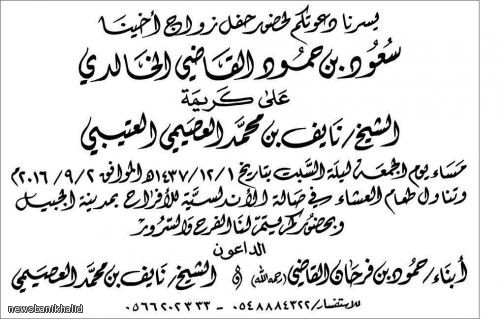 يسرنا دعوتكم لحضور حفل زواج أخينا
سعود بن حمود القاضي الخالدي
على كريمة
الشيخ/ نايف بن محمد العصيمي العتيبي
مساء يوم الجمعة ليلة السبت بتاريخ ١٤٣٧/١٢/١هـ الموافق ٢٠١٦/٩/٢م
وتناول طعام العشاء في صالة الأندلسية للأفراح بمدينة الجبيل
وبحضوركم يتم لنا الفرح والسرور
الداعون
أبناء/ حمود بن فرحان القاضي (رحمه الله) و الشيخ/ نايف بن محمد العصيمي
للاستفسار/ ٠٥٤٨٨٨٤٣٢٢ - ٠٥٦٦٢٠٢٣٣٣
newsbanikhalid